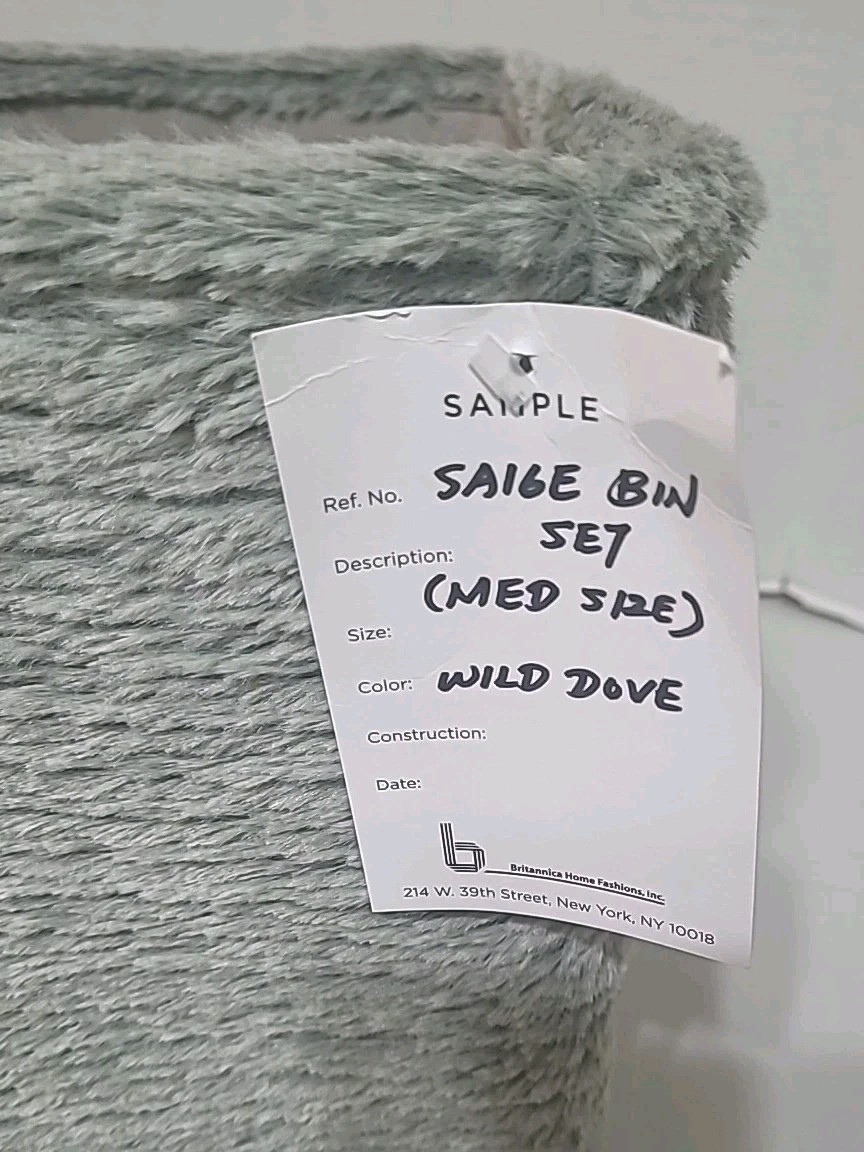 SAMPLE
Ref. No. SAIGE BIN
SET
Description:
(MED SIZE)
Size:
Color: WILD DOVE
Construction:
Date:
b
Britannica Home Fashions, Inc.
214 W. 39th Street, New York, NY 10018